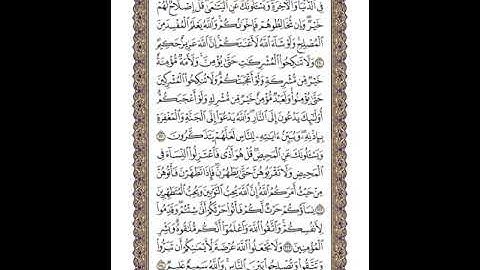 فِى ٱلدُّنْيَا وَٱلْـَٔاخِرَةِ وَيَسْـَٔلُونَكَ عَنِ ٱلْيَتَـٰمَىٰ قُلْ إِصْلَاحٌ لَّهُمْ
خَيْرٌ وَإِن تُخَالِطُوهُمْ فَإِخْوَٰنُكُمْ وَٱللَّهُ يَعْلَمُ ٱلْمُفْسِدَ مِنَ
ٱلْمُصْلِحِ وَلَوْ شَآءَ ٱللَّهُ لَأَعْنَتَكُمْ إِنَّ ٱللَّهَ عَزِيزٌ حَكِيمٌ
٢٢٠ وَلَا تَنكِحُوا۟ ٱلْمُشْرِكَـٰتِ حَتَّىٰ يُؤْمِنَّ وَلَأَمَةٌ مُّؤْمِنَةٌ
خَيْرٌ مِّن مُّشْرِكَةٍ وَلَوْ أَعْجَبَتْكُمْ وَلَا تُنكِحُوا۟ ٱلْمُشْرِكِينَ
حَتَّىٰ يُؤْمِنُوا۟ وَلَعَبْدٌ مُّؤْمِنٌ خَيْرٌ مِّن مُّشْرِكٍ وَلَوْ أَعْجَبَكُمْ
أُو۟لَـٰٓئِكَ يَدْعُونَ إِلَى ٱلنَّارِ وَٱللَّهُ يَدْعُوٓا۟ إِلَى ٱلْجَنَّةِ وَٱلْمَغْفِرَةِ
بِإِذْنِهِۦ وَيُبَيِّنُ ءَايَـٰتِهِۦ لِلنَّاسِ لَعَلَّهُمْ يَتَذَكَّرُونَ ٢٢١
وَيَسْـَٔلُونَكَ عَنِ ٱلْمَحِيضِ قُلْ هُوَ أَذًى فَٱعْتَزِلُوا۟ ٱلنِّسَآءَ فِى
ٱلْمَحِيضِ وَلَا تَقْرَبُوهُنَّ حَتَّىٰ يَطْهُرْنَ فَإِذَا تَطَهَّرْنَ فَأْتُوهُنَّ
مِنْ حَيْثُ أَمَرَكُمُ ٱللَّهُ إِنَّ ٱللَّهَ يُحِبُّ ٱلتَّوَّٰبِينَ وَيُحِبُّ ٱلْمُتَطَهِّرِينَ
٢٢٢ نِسَآؤُكُمْ حَرْثٌ لَّكُمْ فَأْتُوا۟ حَرْثَكُمْ أَنَّىٰ شِئْتُمْ وَقَدِّمُوا۟
لِأَنفُسِكُمْ وَٱتَّقُوا۟ ٱللَّهَ وَٱعْلَمُوٓا۟ أَنَّكُم مُّلَـٰقُوهُ وَبَشِّرِ
ٱلْمُؤْمِنِينَ ٢٢٣ وَلَا تَجْعَلُوا۟ ٱللَّهَ عُرْضَةً لِّأَيْمَـٰنِكُمْ أَن تَبَرُّوا۟
وَتَتَّقُوا۟ وَتُصْلِحُوا۟ بَيْنَ ٱلنَّاسِ وَٱللَّهُ سَمِيعٌ عَلِيمٌ ٢٢٤